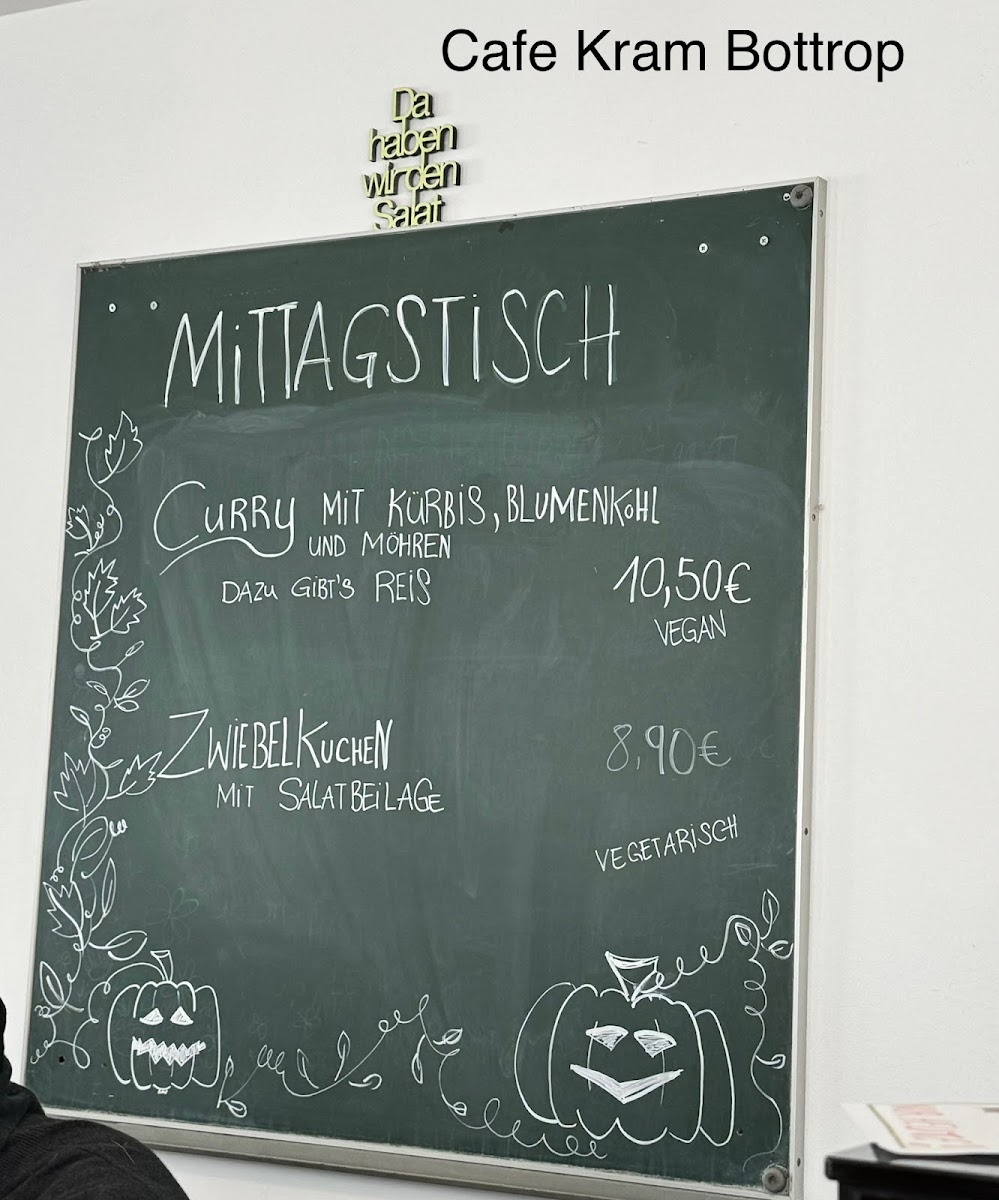 Cafe Kram Bottrop
Da
haben
wir den
Salat
MiTTAGSTiSCH
CURRY MiT KÜRBiS, BLUMENKOHL
UND MÖHREN
DAZU GiBT'S REiS
10,50€
VEGAN
ZWIEBELKUCHEN
MiT SALATBEiLAGE
8,90€
VEGETARiSCH